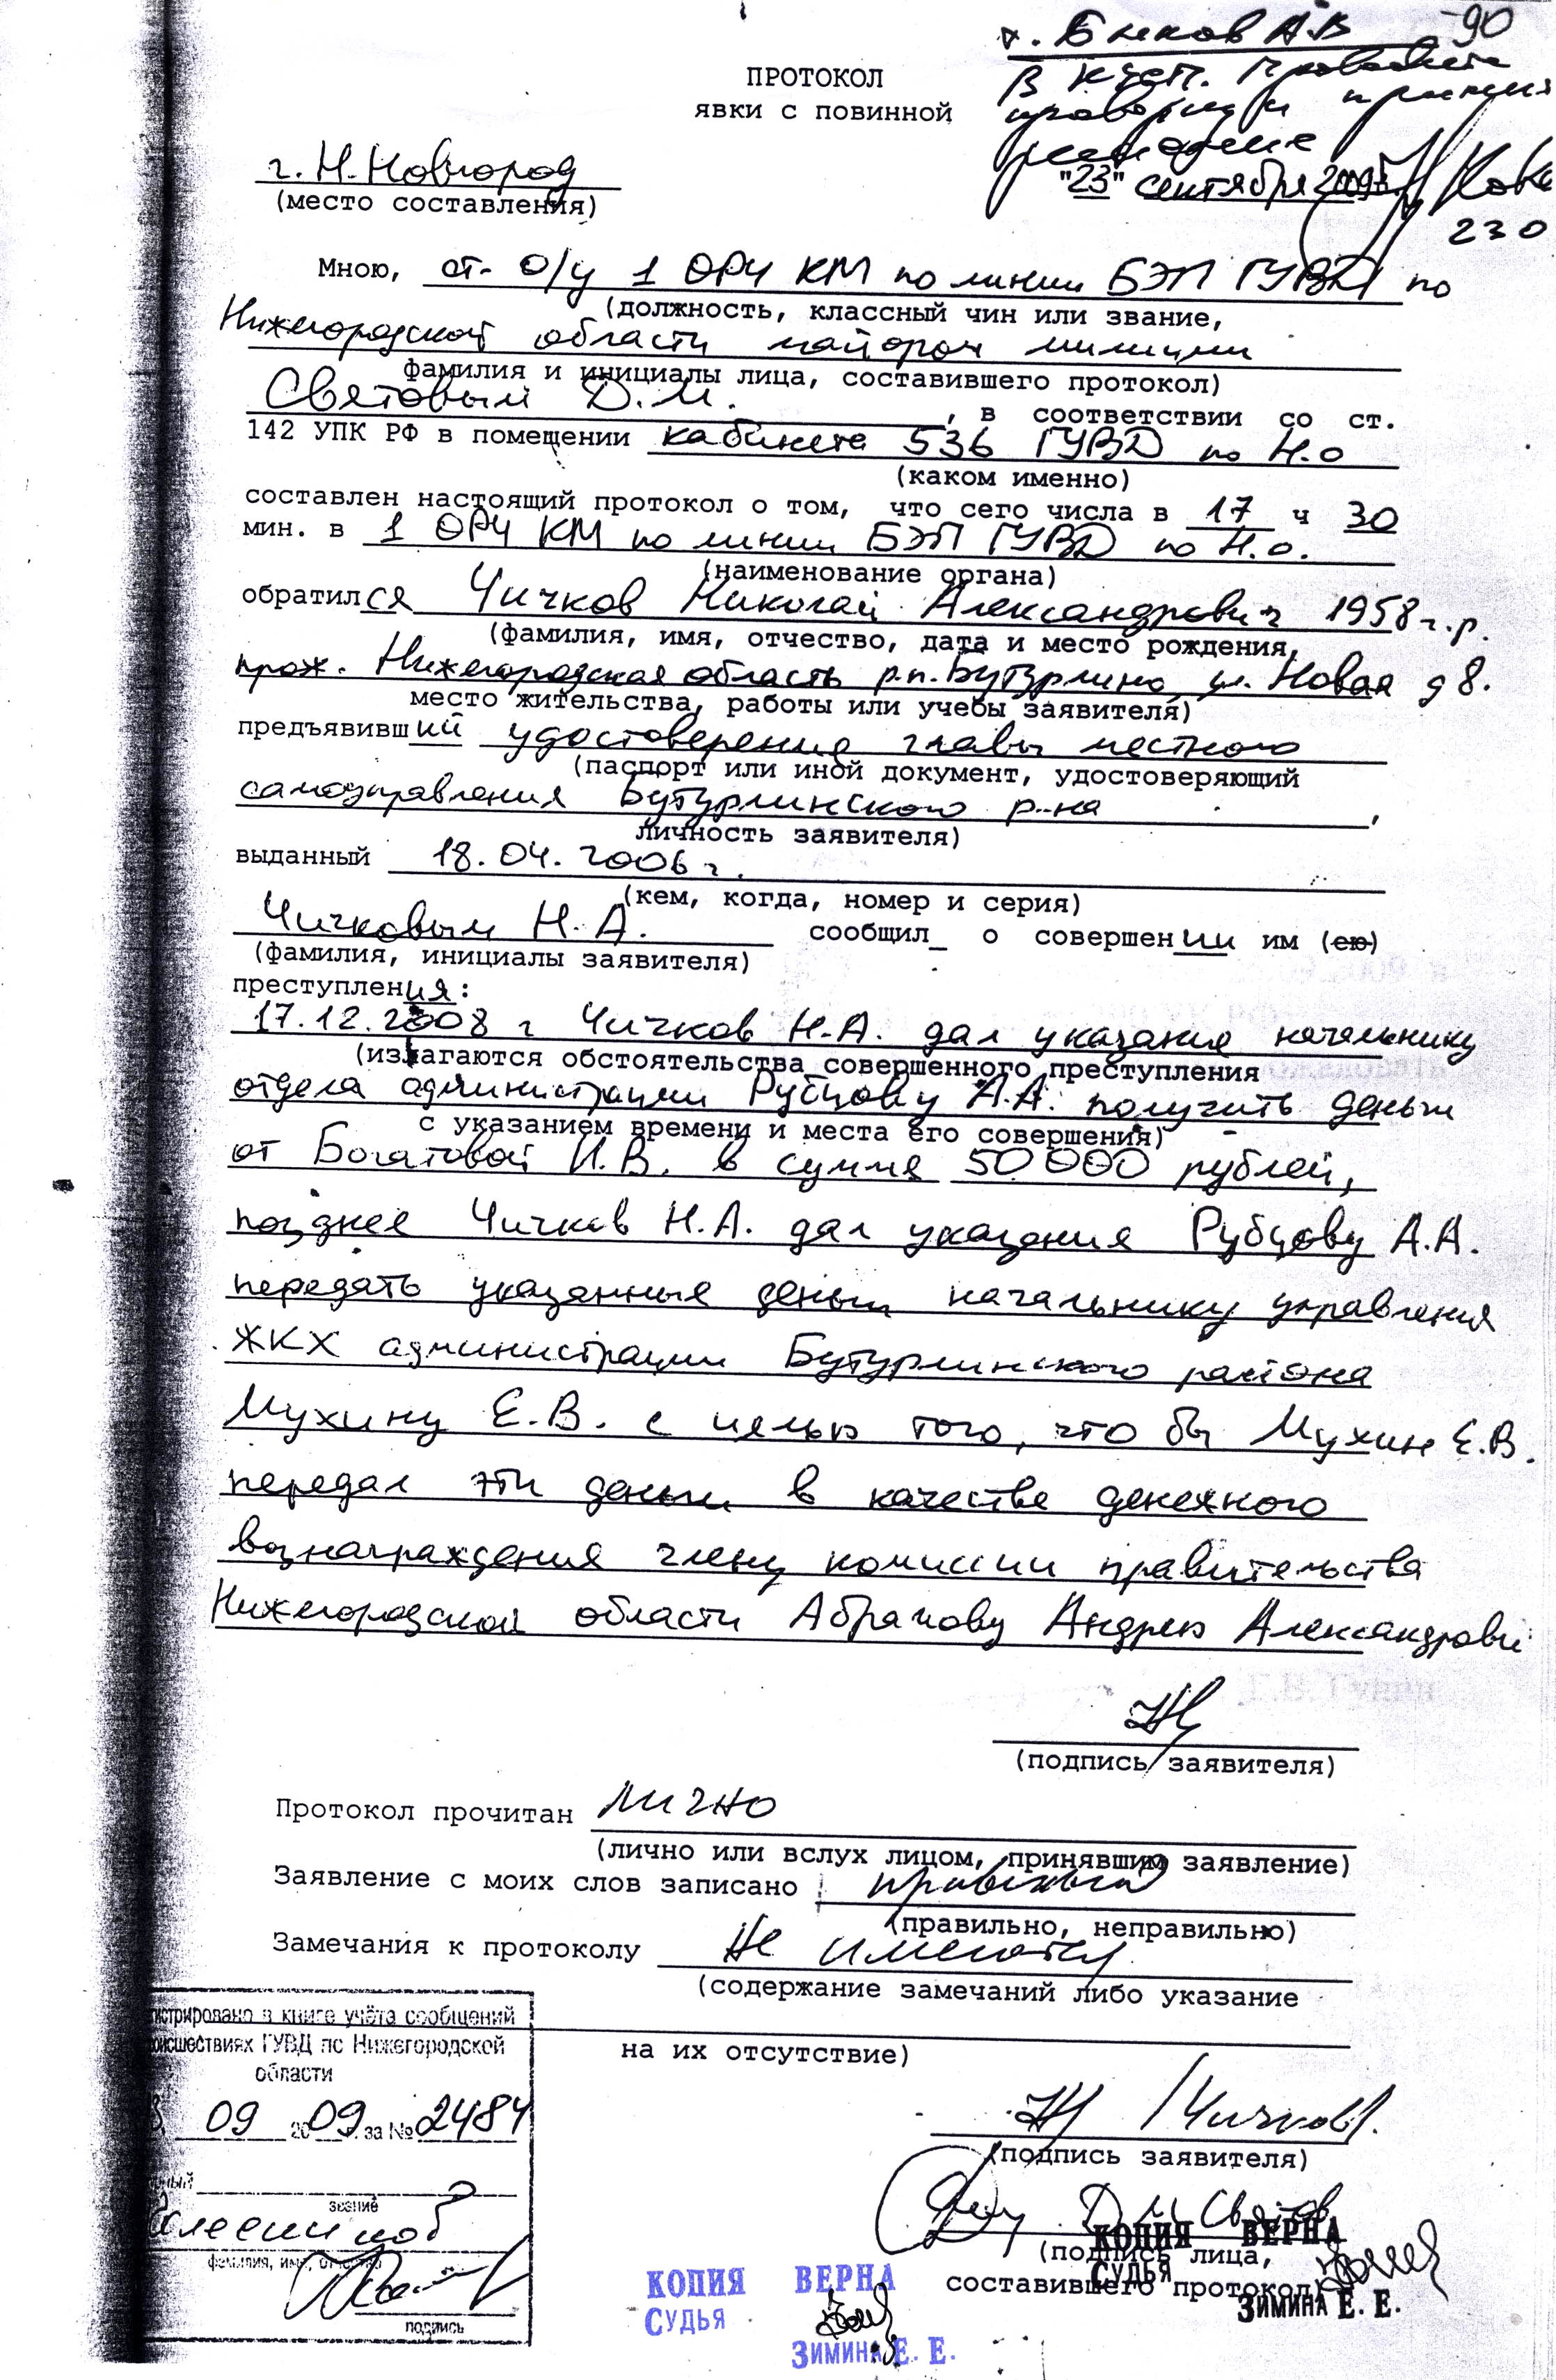 90
т. Быков А.В
ПРОТОКОЛ
В уст.
явки с повинной
г. Н. Новгород
"23" сентября 2009
(место составления)
230
Мною, ст. о/у 1 ОРЧ КМ по линии БЭП ГУВД по
(должность, классный чин или звание,
Нижегородской области майором милиции
фамилия и инициалы лица, составившего протокол)
Световым Д.М. , в соответствии со ст.
142 УПК РФ в помещении кабинета 536 ГУВД по Н.о
(каком именно)
составлен настоящий протокол о том, что сего числа в 17 ч 30
мин. в 1 ОРЧ КМ по линии БЭП ГУВД по Н.о.
(наименование органа)
обратился Чичков Николай Александрович 1958 г.р.
(фамилия, имя, отчество, дата и место рождения,
прож. Нижегородская область р.п. Бутурлино, ул. Новая д 8.
место жительства, работы или учебы заявителя)
предъявивший удостоверение главы местного
(паспорт или иной документ, удостоверяющий
самоуправления Бутурлинского р-на ,
личность заявителя)
выданный 18.04.2006 г.
(кем, когда, номер и серия)
Чичковым Н.А. сообщил_ о совершении им (ею)
(фамилия, инициалы заявителя)
преступления:
17.12.2008 г Чичков Н.А. дал указание начальнику
(излагаются обстоятельства совершенного преступления
отдела администрации Рубцову А.А. получить деньги
с указанием времени и места его совершения)
от Богатовой И.В. в сумме 50 000 рублей,
позднее Чичков Н.А. дал указания Рубцову А.А.
передать указанные деньги начальнику управления
ЖКХ администрации Бутурлинского района
Мухину Е.В. с целью того, что бы Мухин Е.В.
передал эти деньги в качестве денежного
вознаграждения члену комиссии правительства
Нижегородской области Абрамову Андрею Александрови
(подпись заявителя)
Протокол прочитан лично
(лично или вслух лицом, принявшим заявление)
Заявление с моих слов записано правильно
(правильно, неправильно)
Замечания к протоколу не имеются
(содержание замечаний либо указание
на их отсутствие)
истрировано в книге учёта сообщений
оисшествиях ГУВД по Нижегородской
области
09 2009 за № 2484
звание
фамилия, имя, отчество
подпись
/Чичков/.
(подпись заявителя)
Д М Светов
(подпись лица,
составившего протокол)
КОПИЯ ВЕРНА
СУДЬЯ
ЗИМИНА Е. Е.
КОПИЯ ВЕРНА
СУДЬЯ
ЗИМИНА Е. Е.